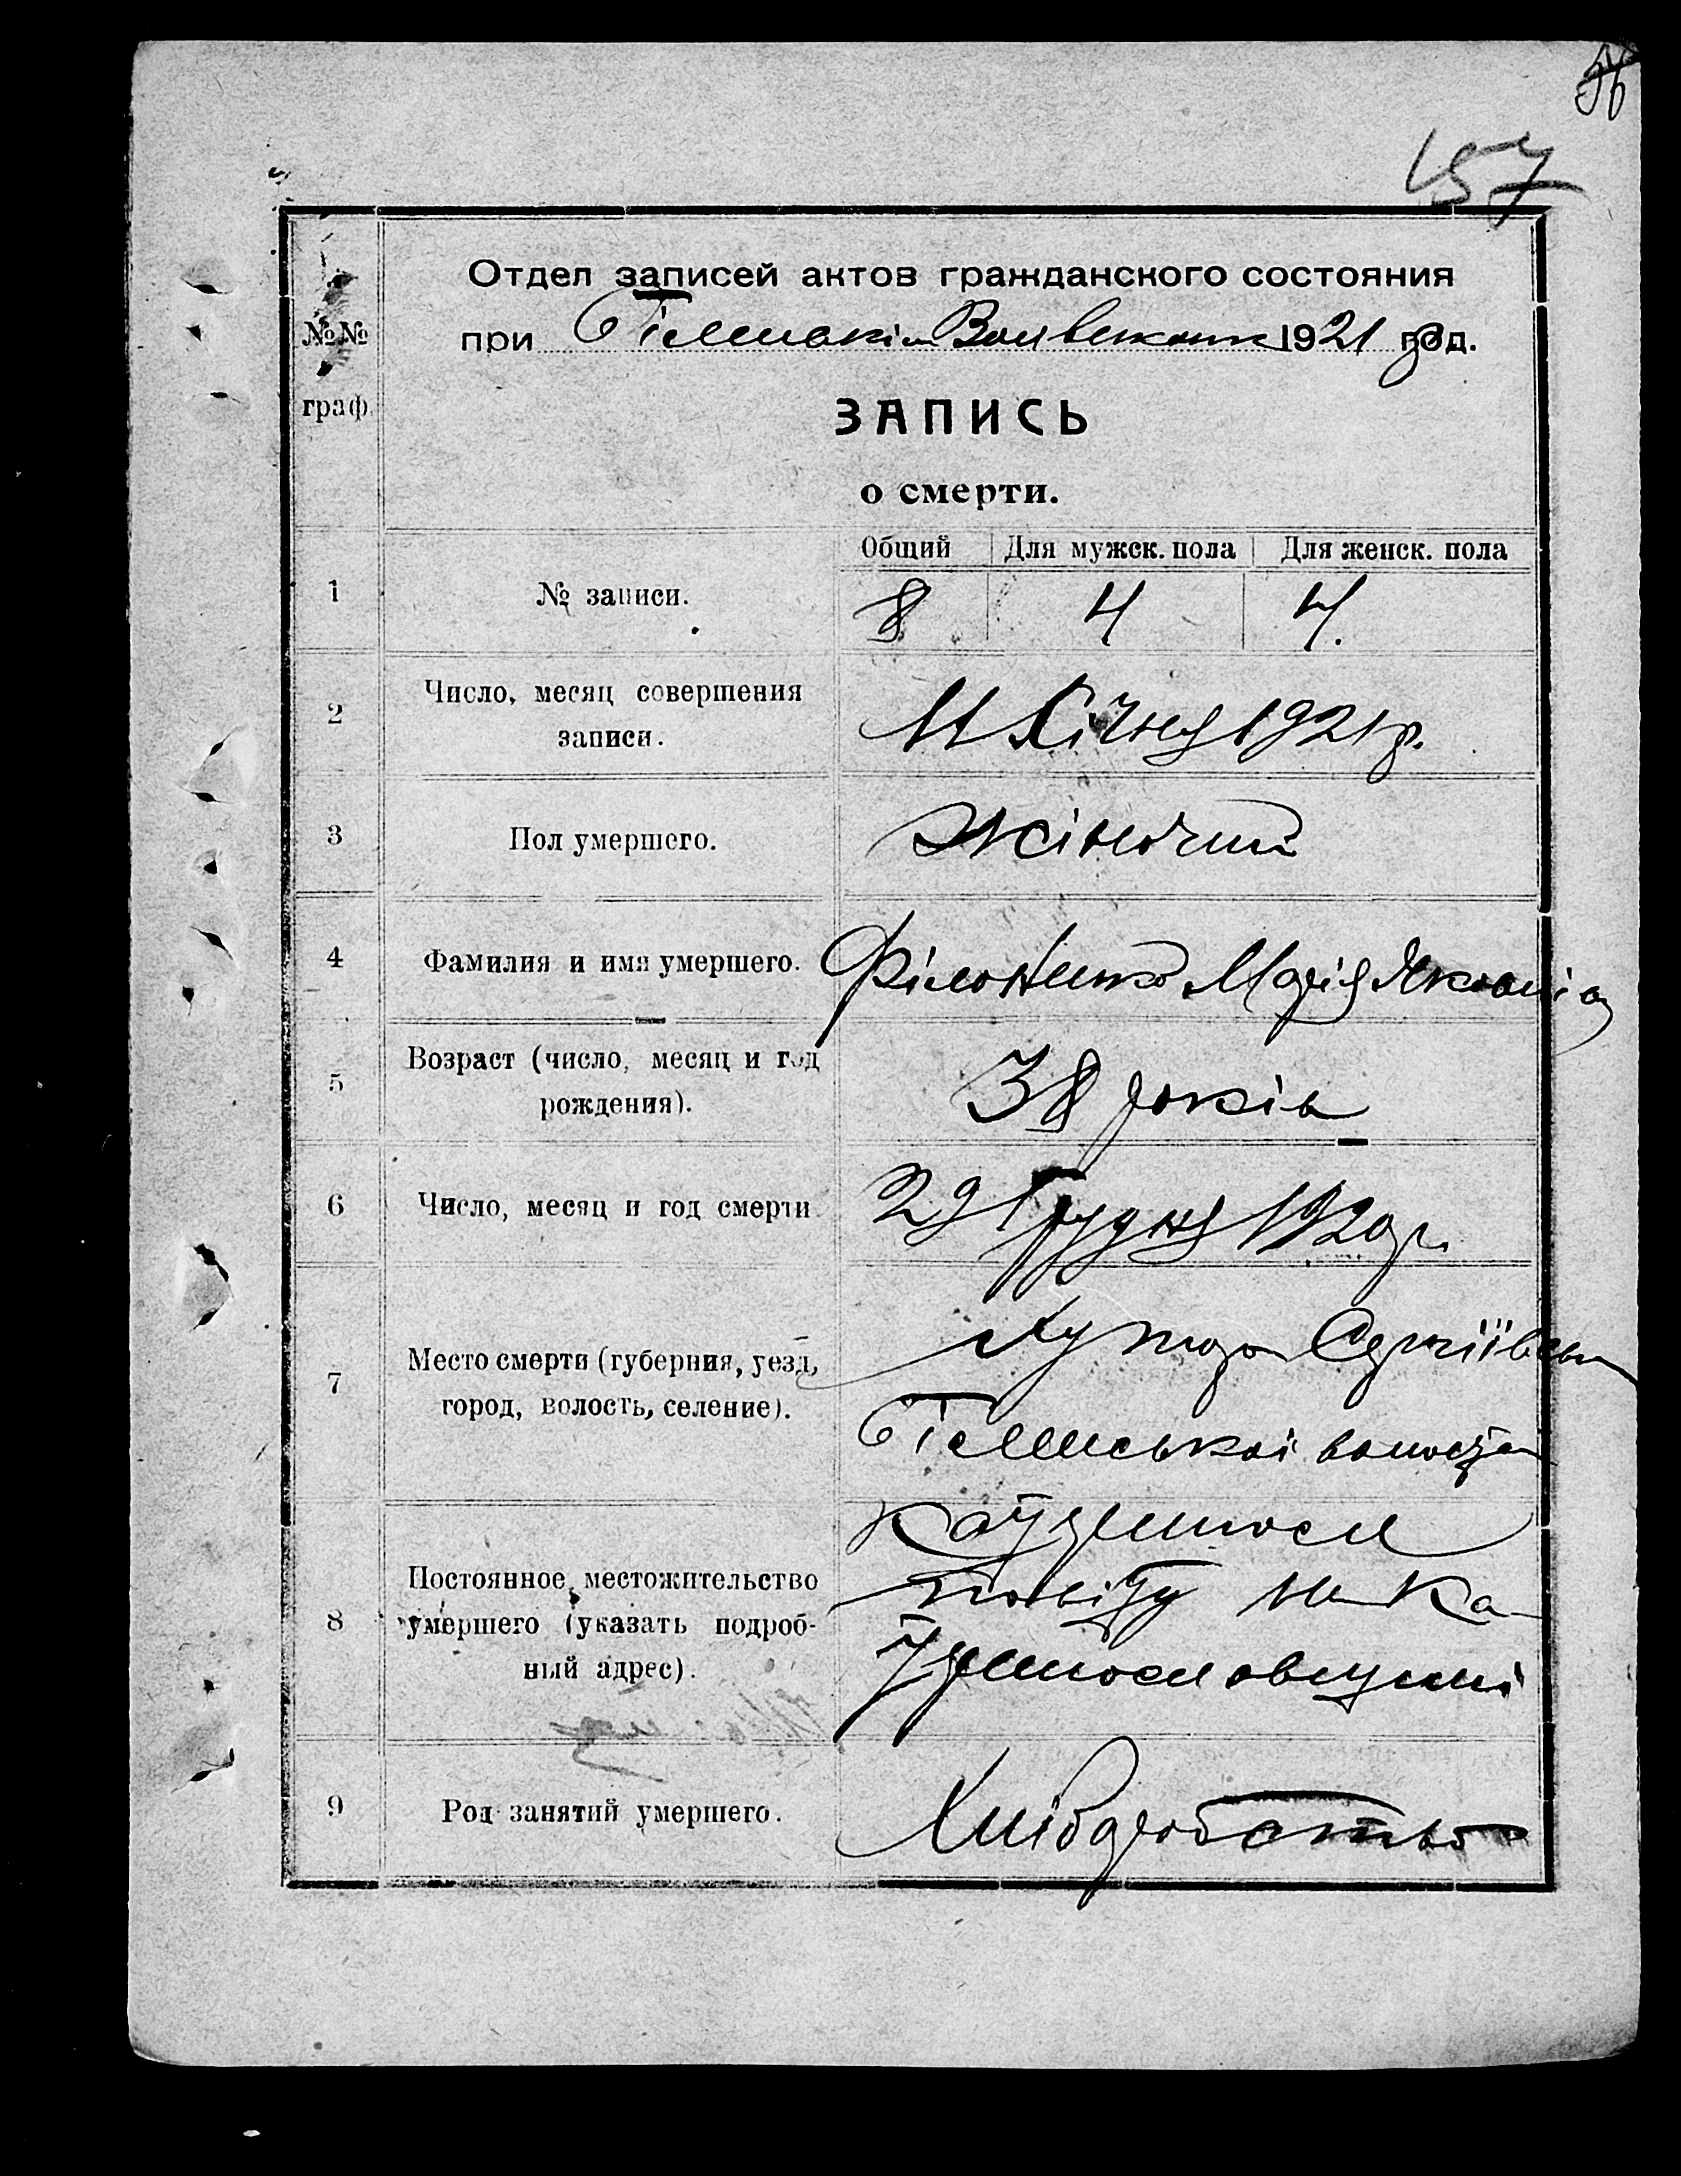 157
№№
граф.
Отдел записей актов гражданского состояния
при 1921 год.
ЗАПИСЬ
о смерти.
Общий Для мужск. пола Для женск. пола
1 № записи. 8 4 4.
2 Число, месяц совершения записи. 11 Січня 1921 р.
3 Пол умершего. Жіночий
4 Фамилия и имя умершего. Філоненко Марія Яковлівна
5 Возраст (число, месяц и год рождения). 38 років
6 Число, месяц и год смерти 29 Грудня 1920 р.
7 Место смерти (губерния, уезд, город, волость, селение).
Хутор
волости
8 Постоянное местожительство умершего (указать подробный адрес).
повіту на Ка-
9 Род занятий умершего. Хліборобство